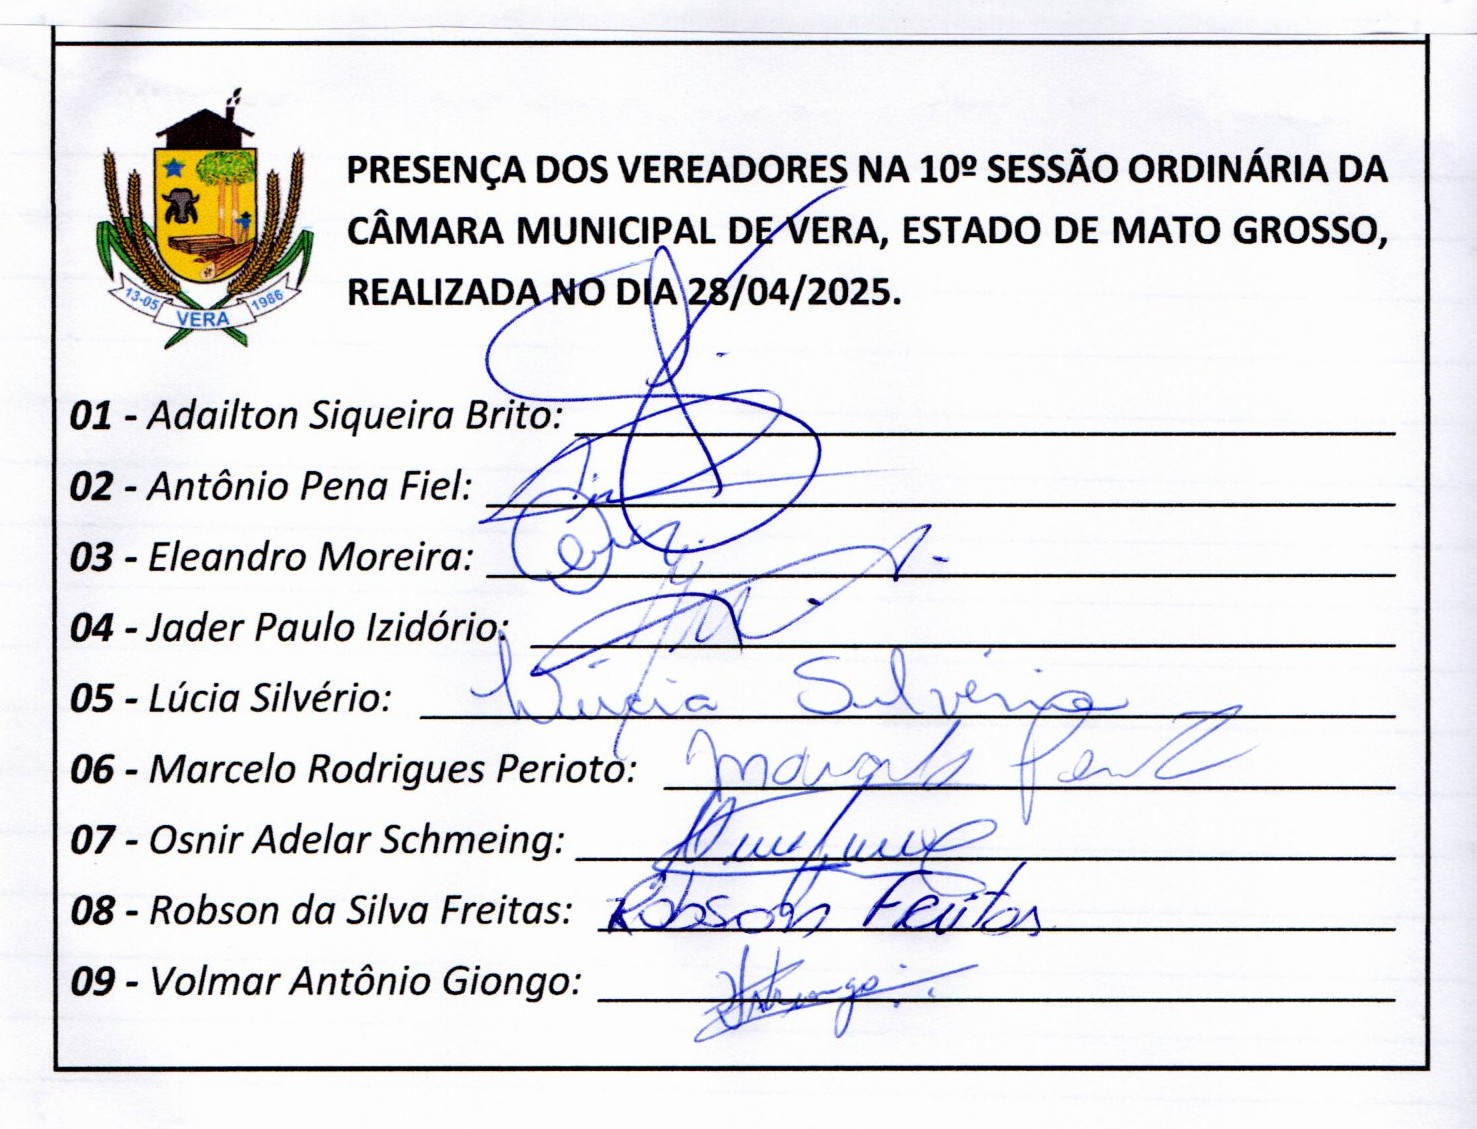 PRESENÇA DOS VEREADORES NA 10º SESSÃO ORDINÁRIA DA
CÂMARA MUNICIPAL DE VERA, ESTADO DE MATO GROSSO,
REALIZADA NO DIA 28/04/2025.
13-05 VERA 1986
01 - Adailton Siqueira Brito:
02 - Antônio Pena Fiel:
03 - Eleandro Moreira:
04 - Jader Paulo Izidório:
05 - Lúcia Silvério: Lúcia Silvério
06 - Marcelo Rodrigues Perioto:
07 - Osnir Adelar Schmeing:
08 - Robson da Silva Freitas: Robson Freitas
09 - Volmar Antônio Giongo: